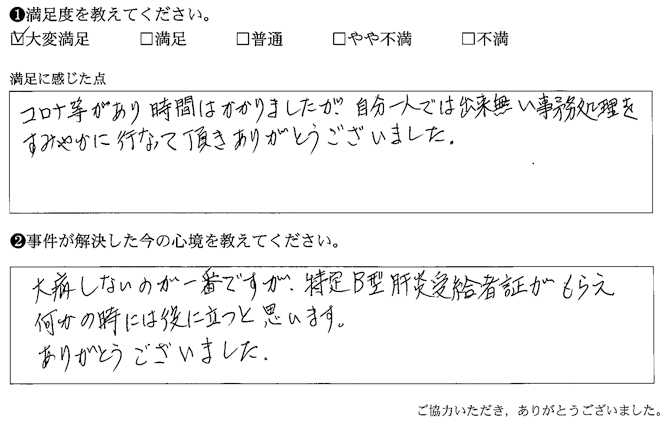 ❶満足度を教えてください。
☑大変満足 □満足 □普通 □やや不満 □不満
満足に感じた点
コロナ等があり時間はかかりましたが、自分一人では出来無い事務処理を
すみやかに行なって頂きありがとうございました。
❷事件が解決した今の心境を教えてください。
大病しないのが一番ですが、特定B型肝炎受給者証がもらえ
何かの時には役に立つと思います。
ありがとうございました。
ご協力いただき，ありがとうございました。